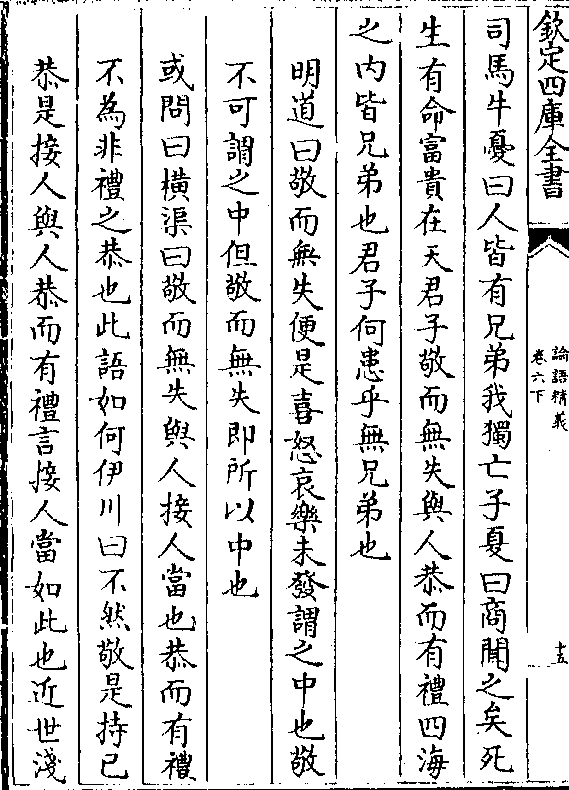 欽定四庫全書
論語精義
卷六下
十五
司馬牛憂曰人皆有兄弟我獨亡子夏曰商聞之矣死
生有命富貴在天君子敬而無失與人恭而有禮四海
之内皆兄弟也君子何患乎無兄弟也
明道曰敬而無失便是喜怒哀樂未發謂之中也敬
不可謂之中但敬而無失即所以中也
或問曰橫渠曰敬而無失與人接人當也恭而有禮
不為非禮之恭也此語如何伊川曰不然敬是持已
恭是接人與人恭而有禮言接人當如此也近世淺